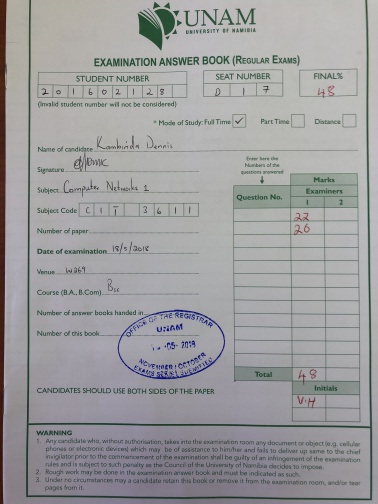 UNAM
UNIVERSITY OF NAMIBIA
EXAMINATION ANSWER BOOK (REGULAR EXAMS)
STUDENT NUMBER SEAT NUMBER FINAL%
201602128 D17 48
(Invalid student number will not be considered)
* Mode of Study: Full Time ✓ Part Time Distance
Name of candidate Kambinda Dennis
Signature
Enter here the Numbers of the questions answered
Marks
Subject Computer Networks 1
Examiners
Question No. 1 2
Subject Code CIT 3611
22
Number of paper
26
Date of examination 18/5/2018
Venue W269
Course (B.A., B.Com) Bsc
Number of answer books handed in
Number of this book
OFFICE OF THE REGISTRAR
UNAM
-05- 2018
NOVEMBER / OCTOBER
Total 48
CANDIDATES SHOULD USE BOTH SIDES OF THE PAPER
Initials
V.H
WARNING
1. Any candidate who, without authorisation, takes into the examination room any document or object (e.g. cellular
phones or electronic devices) which may be of assistance to him/her and fails to deliver up same to the chief
invigilator prior to the commencement of the examination shall be guilty of an infringement of the examination
rules and is subject to such penalty as the Council of the University of Namibia decides to impose.
2. Rough work may be done in the examination answer book and must be indicated as such.
3. Under no circumstances may a candidate retain this book or remove it from the examination room, and/or tear
pages from it.